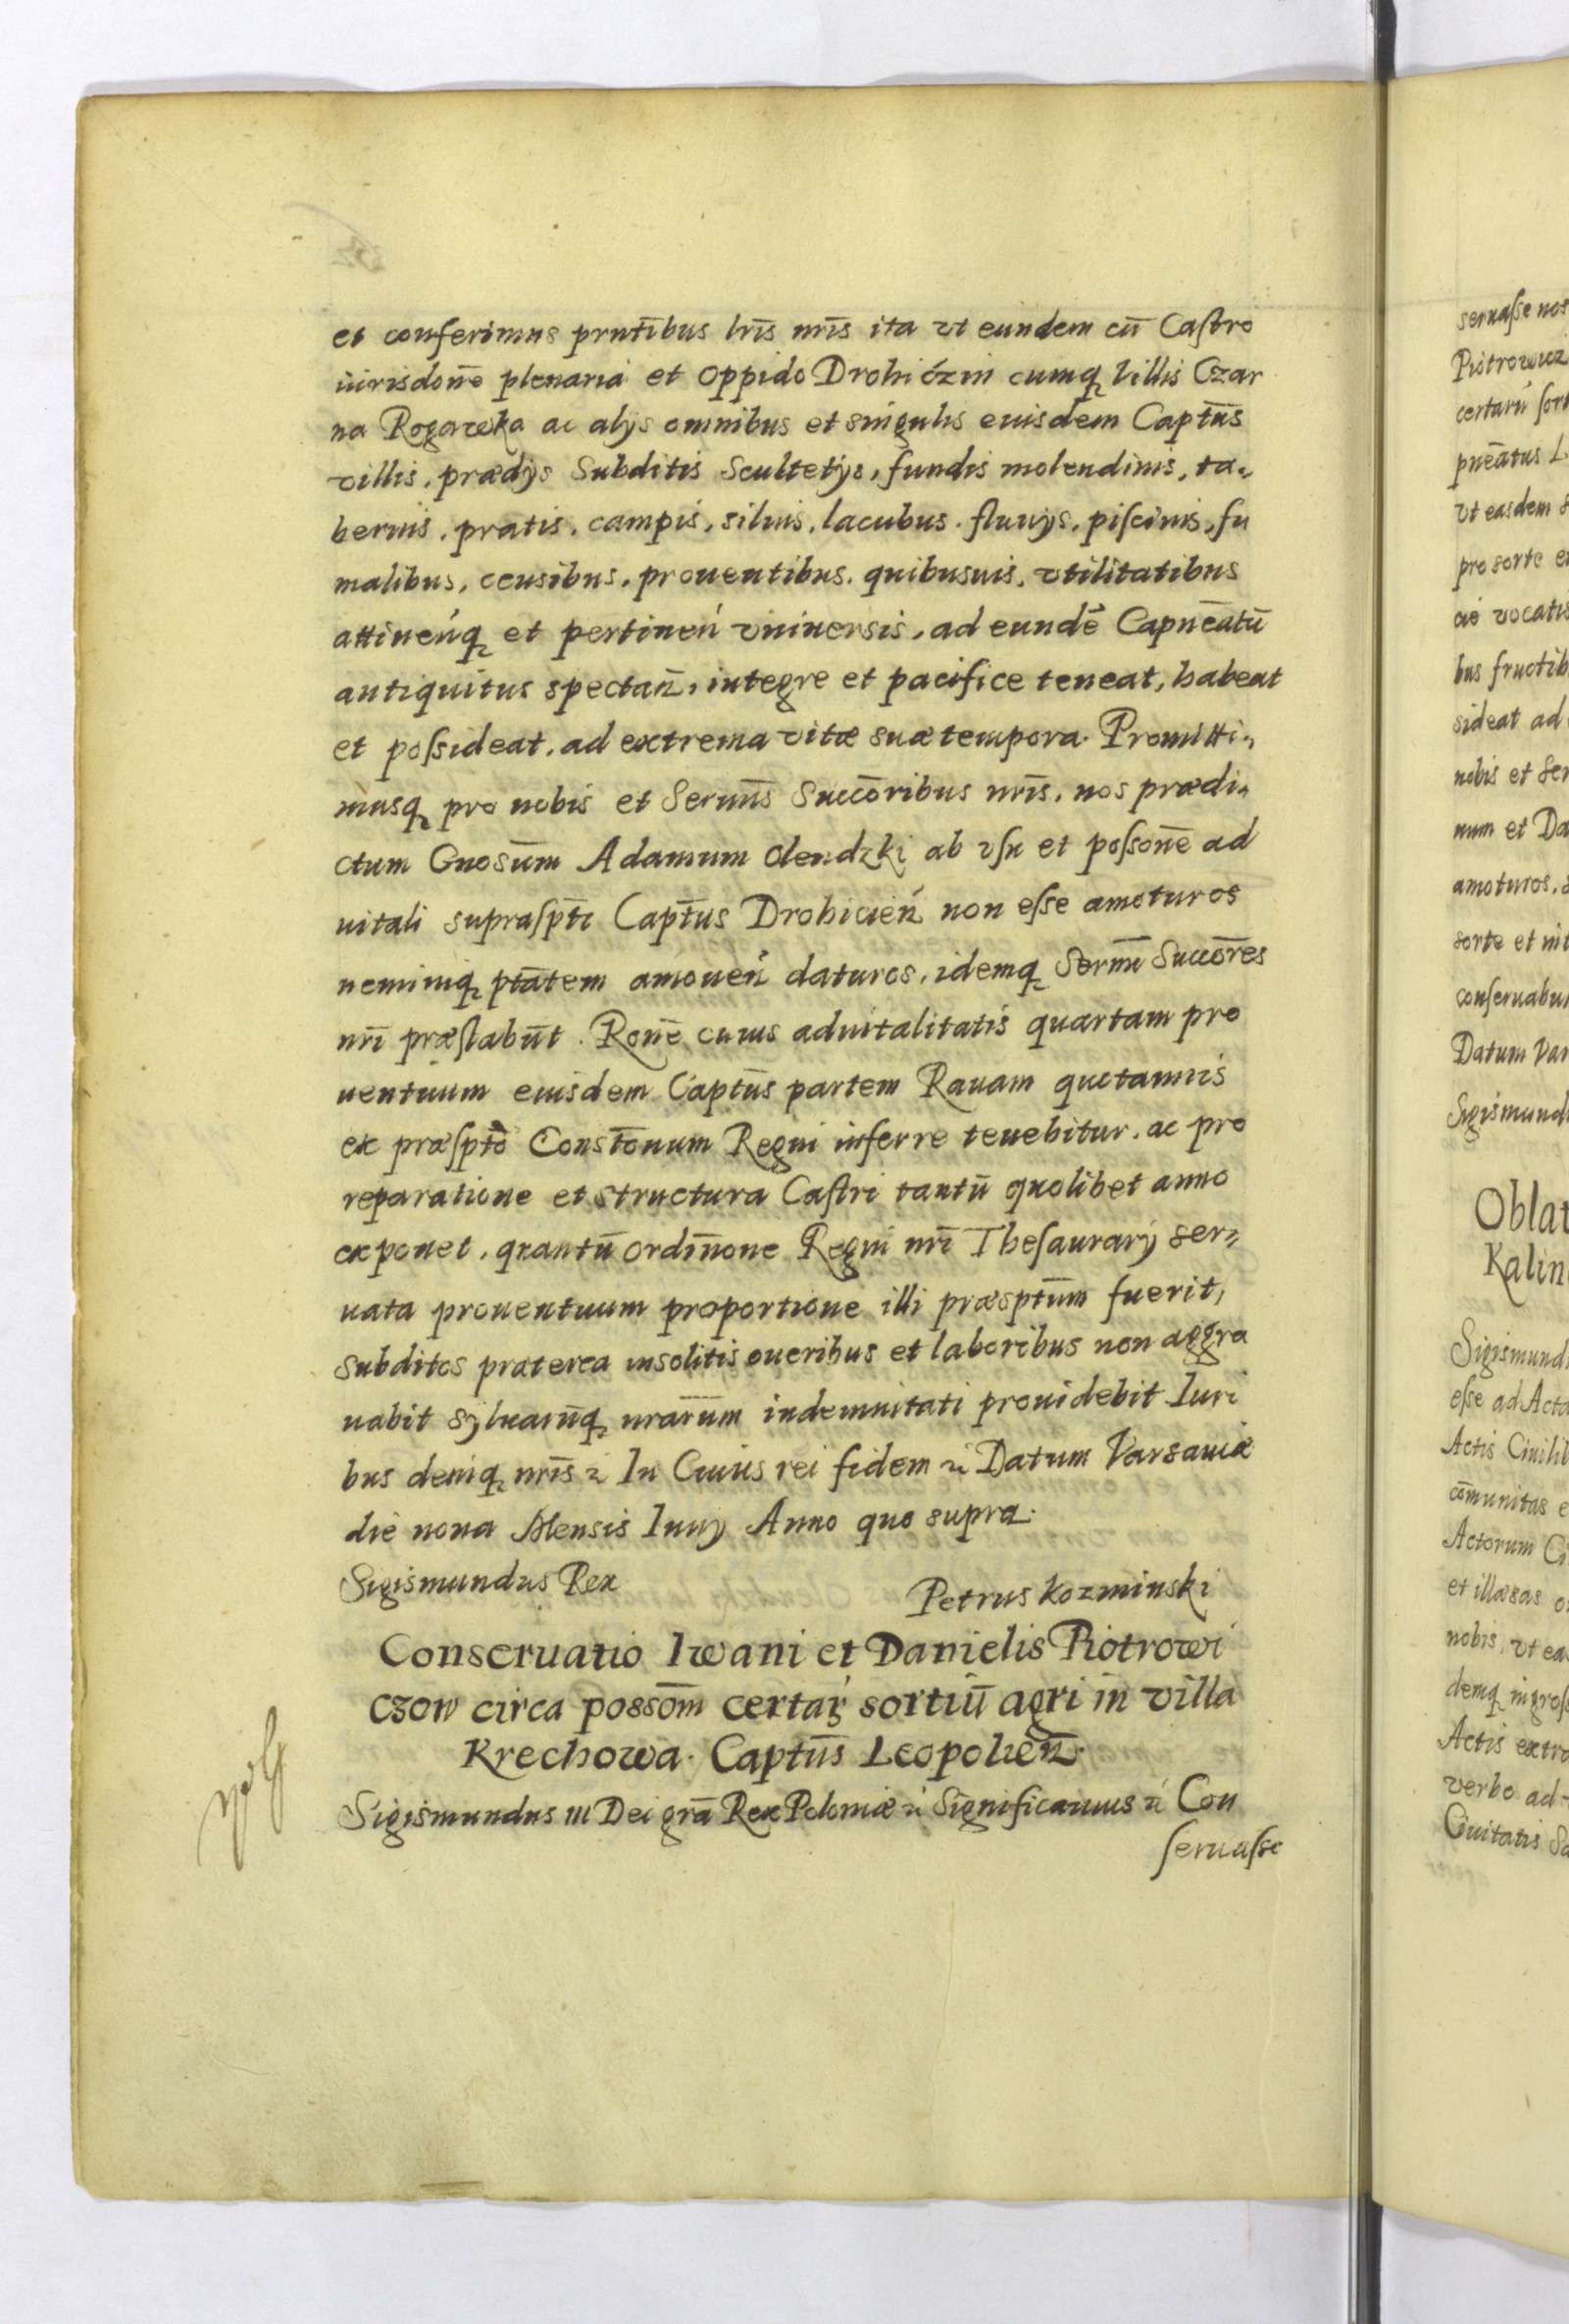 et conferimus prntĩbus lrĩs nrĩs ita vt eundem cũ Castro
iurisdonẽ plenaria et oppido Drohićzin cumq villis Czar
na Rogawka ac alijs omnibus et singulis eiusdem Captũs
villis, prædijs Subditis Scultetijs, fundis molendinis, ta-
bernis, pratis, campis, siluis, lacubus, fluuijs, piscinis, fu
malibus, censibus, prouentibus, quibusuis, vtilitatibus
attineńq et pertineń vniuersis, ad eundẽ Capneatũ
antiquitus spectań, integre et pacifice teneat, habeat
et possideat, ad extrema vitæ suæ tempora. Promitti-
musq pro nobis et Sermĩs Succoribus nrĩs, nos prædi-
ctum Gnosũm Adamum Olendzki ab vsu et possonẽ ad
uitali supraspti Captũs Drohicień non esse amoturos
neminiq ptatem amoueń daturos, idemq Sermĩ Succores
nrĩ præstabũt. Ronẽ cuius aduitalitatis quartam pro
uentuum eiusdem Captũs partem Rauam quotannis
ex præsptõ Constonum Regni inferre tenebitur, ac pro
reparatione et structura Castri tantũ quolibet anno
exponet, quantũ ordinone Regni nrĩ Thesaurarij ser-
uata prouentuum proportione illi præsptũm fuerit,
subditos præterea insolitis oneribus et laboribus non aggra
uabit syluarũq nrarũm indemnitati prouidebit Iuri
bus deniq nrĩs ꝛ In Cuius rei fidem ꝛ Datum Varsauiæ
die nona Mensis Iunij Anno quo supra.
Sigismundus Rex
Petrus Kozminski
Conseruatio Iwani et Danielis Piotrowi
czow circa possom̃ certaꝝ sortiũ agri in villa
Krechowa. Captũs Leopolień.
Sigismundus III Dei grã Rex Poloniæ ꝛ Significamus ꝛ Con
seruasse
seruasse nos
Piotrowicz
certarũ sort
pneatus L
vt easdem s
pro sorte e
bus fructib
sideat ad
nobis et Ser
num et Da
amoturos,
sorte et
conseruabu
Datum Var
Sigismund
Oblat
Kalin
Sigismund
esse ad Acta
Actis Ciuilib
cõmunitas e
Actorum Ci
et illæsas o
nobis, vt ea
demq ingros
Actis extra
verbo ad
Ciuitatis Sa